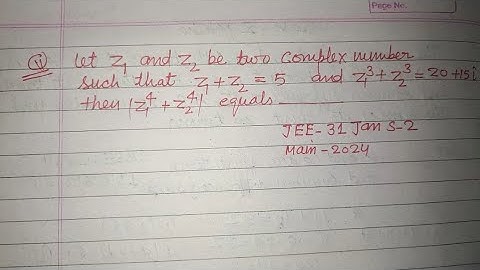 Page No.
(ii) Let z₁ and z₂ be two complex number
such that z₁ + z₂ = 5 and z₁³ + z₂³ = 20 + 15i
then |z₁⁴ + z₂⁴| equals
JEE - 31 Jan S-2
Main - 2024